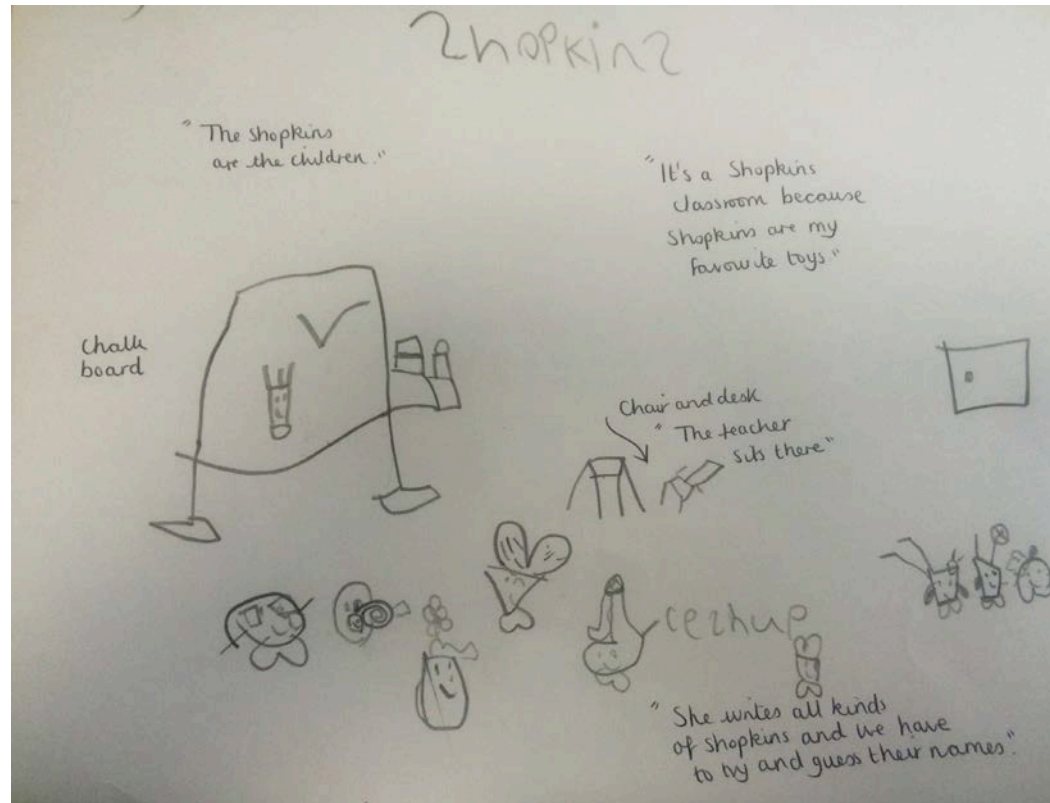 ShopkinS
"The Shopkins
are the children."
"It's a Shopkins
classroom because
Shopkins are my
favourite toys"
Chalk
board
Chair and desk
"The teacher
sits there"
cezhup
"She writes all kinds
of shopkins and we have
to try and guess their names".